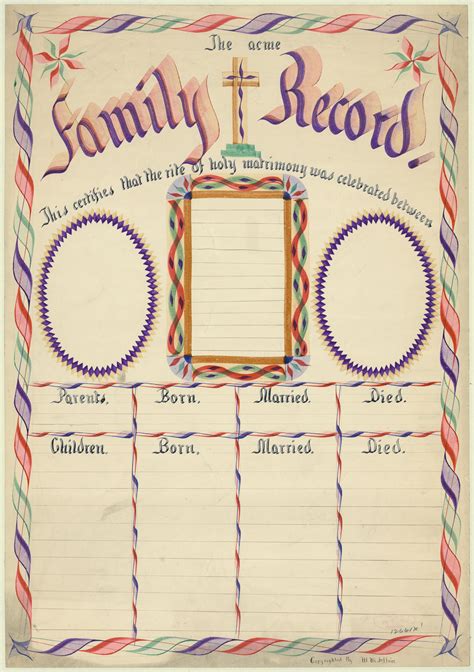 The acme
Family Record.
This certifies that the rite of holy matrimony was celebrated between
Parents. Born. Married. Died.
Children. Born. Married. Died.
Copyrighted By